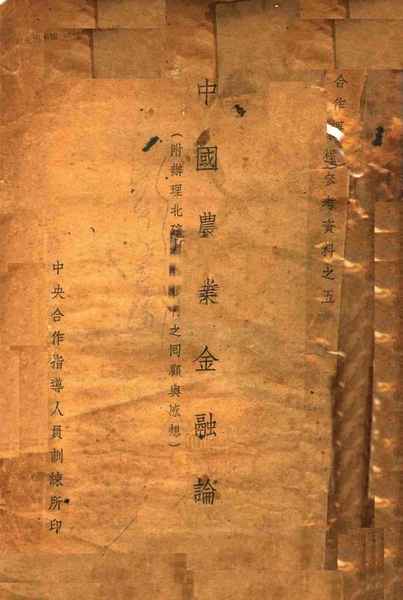 合作 參考資料之五
中國農業金融論
(附辦理北 之回顧與感想)
中央合作指導人員訓練所印